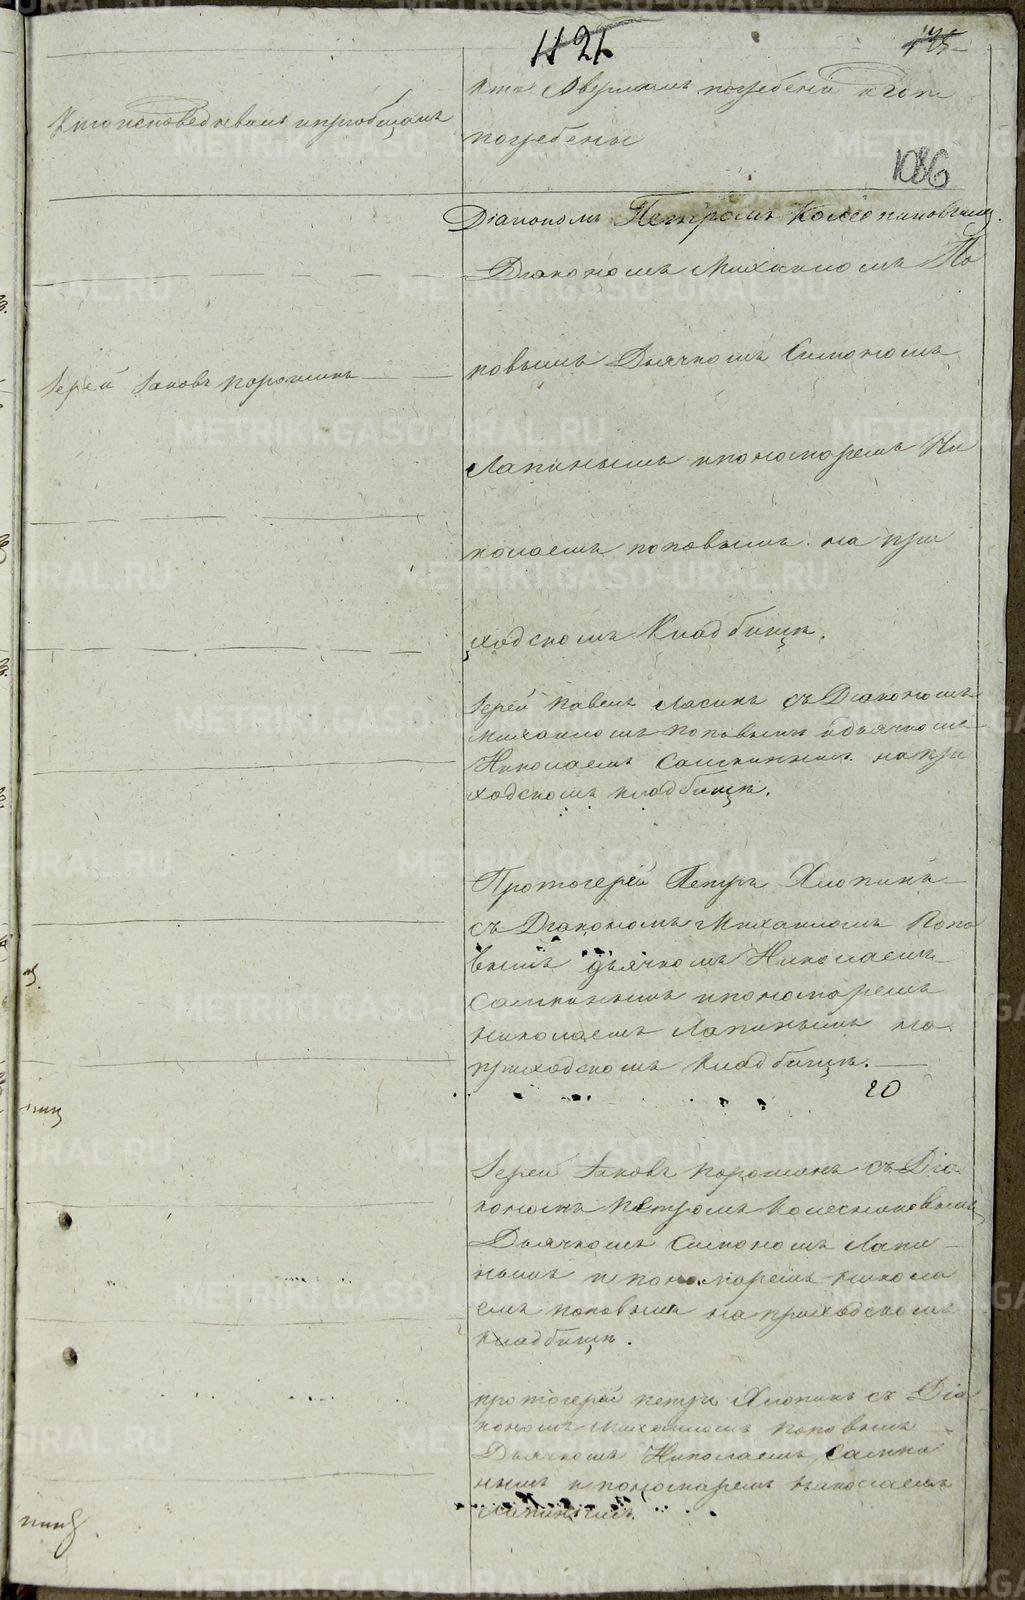 1121.
Кто исповедывалъ и приобщалъ
Кто совершалъ погребение и гдѣ
погребены
1086
Діакономъ Петромъ Колесниковымъ.
Діакономъ Михаиломъ По
повымъ Дьячкомъ Симономъ
Іерей Іаковъ Порошинъ
Лапинымъ и пономаремъ Ни
колаемъ Поповымъ на при
ходскомъ Кладбищѣ.
Іерей Павелъ съ Діакономъ
Михаиломъ Поповымъ и дьячкомъ
Николаемъ на при
ходскомъ кладбищѣ.
Протоіерей Петръ Хлопинъ
съ Діакономъ Михаиломъ Попо
вымъ дьячкомъ Николаемъ
и пономаремъ
Николаемъ Лапинымъ на
приходскомъ Кладбищѣ.
20
Іерей Іаковъ Порошинъ съ Діа
кономъ Петромъ Колесниковымъ
Дьячкомъ Симономъ Лапи
нымъ и пономаремъ Никола
емъ Поповымъ на приходскомъ
Кладбищѣ.
протоіерей Петръ Хлопинъ съ Діа
кономъ Михаиломъ Поповымъ
Дьячкомъ Николаемъ
нымъ и пономаремъ Николаемъ
Лапинымъ
METRIKI.GASO-URAL.RU